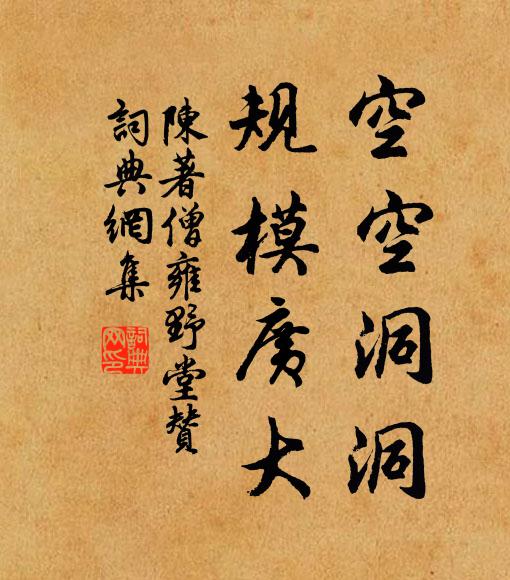 空空洞洞
規模廣大
陳著僧雍野堂贊
詞典網集
詞典
网印